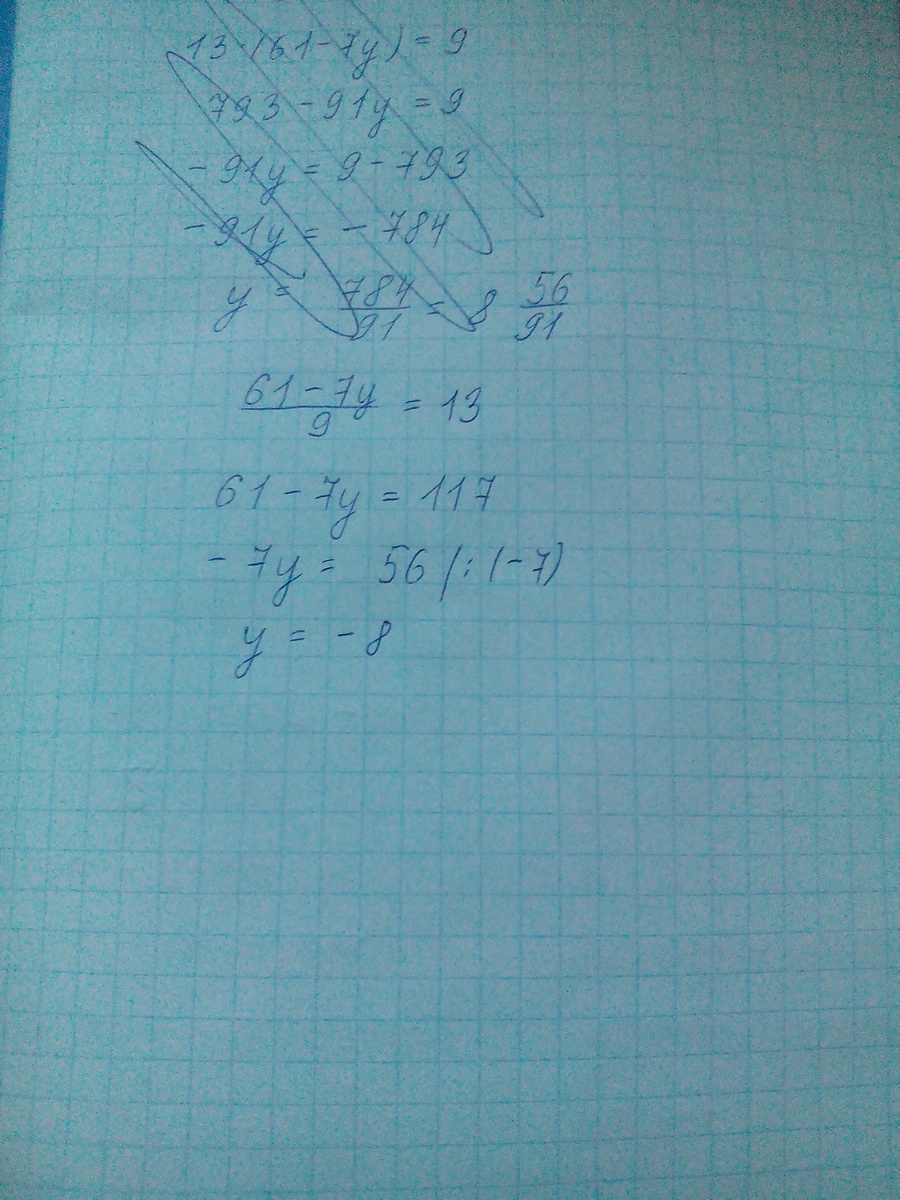 13·(61-7y) = 9
793 - 91y = 9
- 91y = 9 - 793
- 91y = - 784
y = 784/91 = 8 56/91
(61 - 7y)/9 = 13
61 - 7y = 117
- 7y = 56 |: (-7)
y = - 8